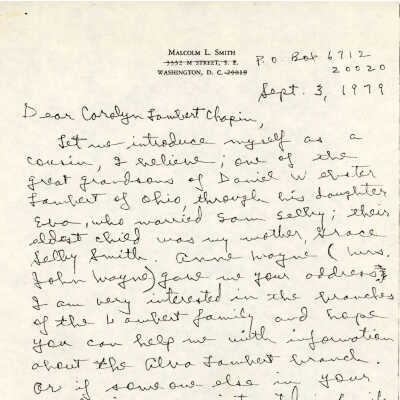 MALCOLM L. SMITH
3332 M STREET, S. E.
WASHINGTON, D. C. 20019
P.O. Box 6712
20020
Sept. 3, 1979
Dear Carolyn Lambert Chapin,
Let me introduce myself as a
cousin, I believe; one of the
great grandsons of Daniel Webster
Lambert of Ohio, through his daughter
Eva, who married Sam Selby; their
eldest child was my mother, Grace
Selby Smith. Anne Wayne (Mrs.
John Wayne) gave me your address.
I am very interested in the branches
of the Lambert family and hope
you can help me with information
about the Alva Lambert branch.
Or if someone else in your